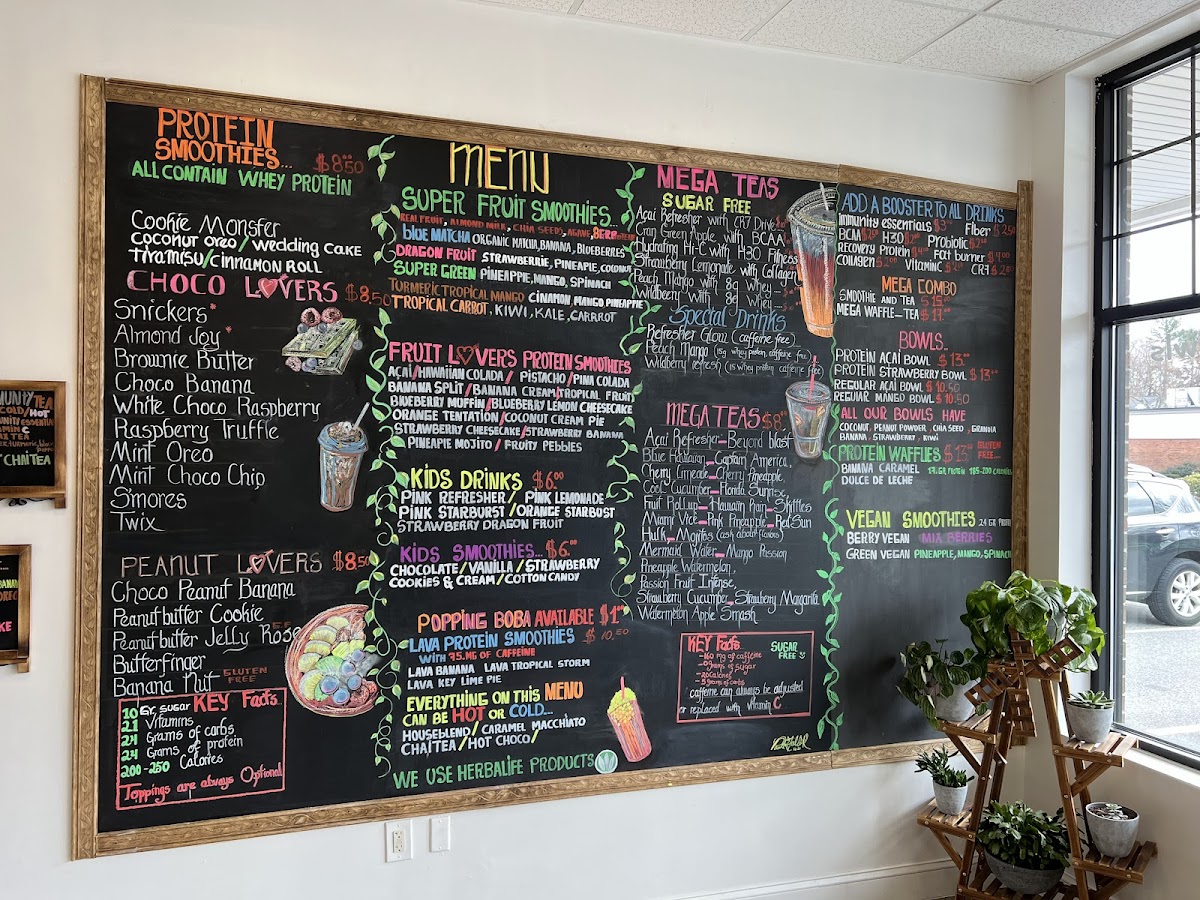 PROTEIN
SMOOTHIES... $8.50
ALL CONTAIN WHEY PROTEIN
Cookie Monster
Coconut oreo/wedding cake
Tiramisu/cinnamon roll
CHOCO LOVERS $8.50
Snickers*
Almond Joy
Brownie Butter
Choco Banana
White Choco Raspberry
Raspberry Truffle
Mint Oreo
Mint Choco Chip
S'mores
Twix
PEANUT LOVERS $8.50
Choco Peanut Banana
Peanutbutter Cookie
Peanutbutter Jelly
Butterfinger
Banana Nut GLUTEN
FREE
KEY Facts..
10 Gr. sugar
21 Vitamins
24 Grams of carbs
24 Grams of protein
200-250 Calories
Toppings are always Optional
MENU
SUPER FRUIT SMOOTHIES...
REAL FRUIT, ALMOND MILK, CHIA SEEDS, AGAVE,
BLUE MATCHA ORGANIC MATCHA, BANANA, BLUEBERRIES
DRAGON FRUIT STRAWBERRIE, PINEAPLE, COCONUT
SUPER GREEN PINEAPPLE, MANGO, SPINACH
TURMERIC TROPICAL MANGO CINAMON, MANGO PINEAPPLE
TROPICAL CARROT. KIWI, KALE, CARRROT
FRUIT LOVERS PROTEIN SMOOTHIES
AÇAI/HAWAIIAN COLADA/ PISTACHO/PINA COLADA
BANANA SPLIT/BANANA CREAM/TROPICAL FRUIT
BLUEBERRY MUFFIN/BLUEBERRY LEMON CHEESECAKE
ORANGE TENTATION/COCONUT CREAM PIE
STRAWBERRY CHEESECAKE/STRAWBERRY BANANA
PINEAPLE MOJITO/ FRUITY PEBBLES
KIDS DRINKS $6.00
PINK REFRESHER/ PINK LEMONADE
PINK STARBURST/ORANGE STARBUST
STRAWBERRY DRAGON FRUIT
KIDS SMOOTHIES... $6.00
CHOCOLATE/VANILLA/STRAWBERRY
COOKIES & CREAM/COTTON CANDY
POPPING BOBA AVAILABLE $1.00
LAVA PROTEIN SMOOTHIES $10.50
WITH 75 MG OF CAFFEINE
LAVA BANANA LAVA TROPICAL STORM
LAVA KEY LIME PIE
EVERYTHING ON THIS MENU
CAN BE HOT OR COLD...
HOUSEBLEND/CARAMEL MACCHIATO
CHAI TEA/HOT CHOCO/
WE USE HERBALIFE PRODUCTS
MEGA TEAS
SUGAR FREE
Açai Refresher with CR7 Drive
Cran Green Apple with BCAA
Hydrating Hi-C with H3O Fitness
Strawberry Lemonade with Collagen
Peach Mango with 8g Whey
Wildberry with 8g Whey
Special Drinks
Refresher Glow (caffeine free)
Peach Mango (15g whey protein, caffeine free
Wildberry refresh (15 whey protein caffeine free
MEGA TEAS $8
Açai Refresher-Beyond blast
Blue Hawaiian-Captain America,
Cherry Limeade-Cherry Pineapple,
Cool Cucumber-Florida Sunrise,
Fruit Roll up-Hawaiin Rain-Skittles
Miami Vice-Pink Pineapple-Red Sun
Hulk-Mojitos (ask about flavors)
Mermaid Water-Mango Passion
Pineapple Watermelon,
Passion Fruit Intense,
Strawberry Cucumber-Strawberry Margarita
Watermelon Apple Smash
KEY Facts SUGAR
FREE
-160 mg of caffeine
-0 grams of sugar
-20 calories
-5 grams of carbs
caffeine can always be adjusted
or replaced with vitamin C
ADD A BOOSTER TO ALL DRINKS
Immunity essentials $3 Fiber $2.50
BCAA H3O Probiotic
RECOVER Protein Fat burner $4.00
Collagen Vitamin C CR7
MEGA COMBO
SMOOTHIE AND TEA $15.
MEGA WAFFLE-TEA $17.
BOWLS..
PROTEIN ACAI BOWL $13.
PROTEIN STRAWBERRY BOWL $13.
REGULAR ACAI BOWL $10.50
REGULAR MANGO BOWL $10.50
ALL OUR BOWLS HAVE
COCONUT, PEANUT POWDER, CHIA SEED, GRANNLA
BANANA, STRAWBERRY, KIWI
PROTEIN WAFFLES $13 GLUTEN
FREE...
BANANA CARAMEL
DULCE DE LECHE
VEGAN SMOOTHIES 24 GR PROTEIN
BERRY VEGAN MIX BERRIES
GREEN VEGAN PINEAPPLE, MANGO, SPINACH
TEA
COLD/HOT
CHAI TEA